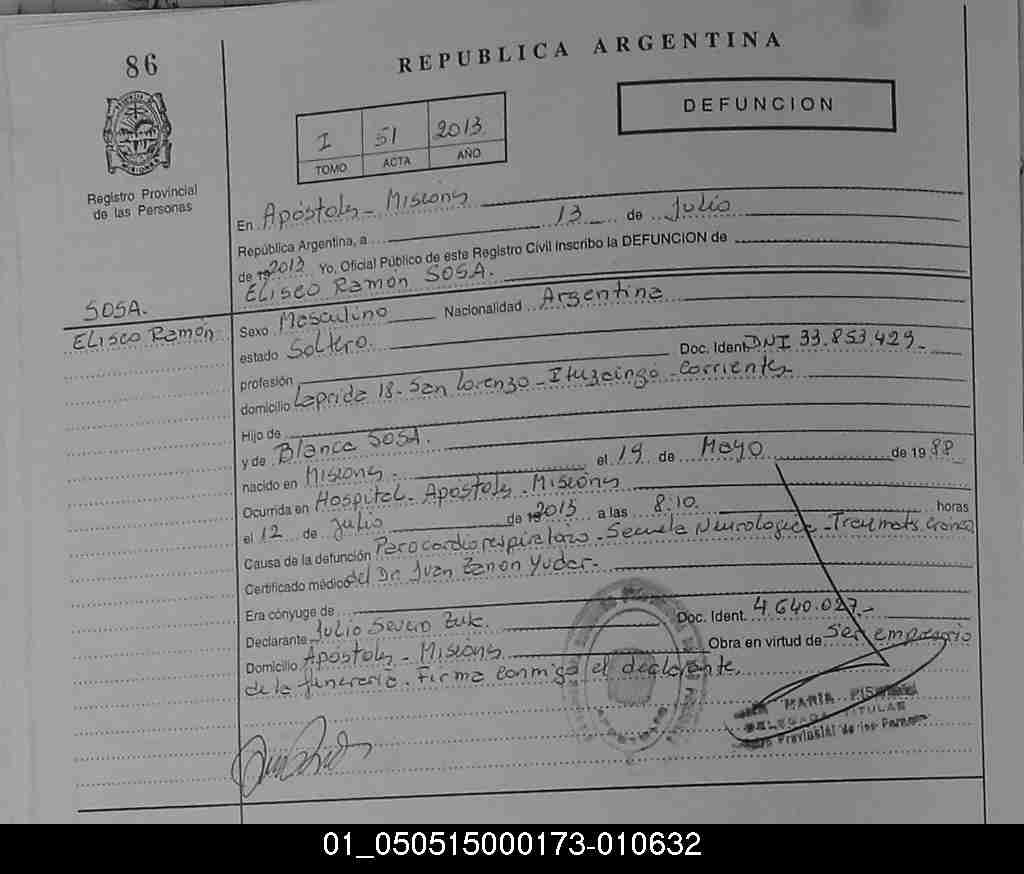 86
REPUBLICA ARGENTINA
DEFUNCION
I 51 2013
TOMO ACTA AÑO
Registro Provincial
de las Personas
En Apóstoles - Misiones
República Argentina, a 13 de Julio
de 2013 Yo, Oficial Público de este Registro Civil inscribo la DEFUNCION de
ELiseo Ramón SOSA.
SOSA.
ELiseo Ramón
Sexo Masculino Nacionalidad Argentina
estado Soltero.
profesión Doc. Ident. DNI 33.853.429-
domicilio Laprida 18- San Lorenzo - Ituzaingó - Corrientes-
Hijo de
y de Blanca SOSA.
nacido en Misiones - el 19 de Mayo de 1988
Ocurrida en Hospital - Apóstoles - Misiones
el 12 de Julio de 2013 a las 8:10 horas
Causa de la defunción Parocardiorespiratorio - Secuela Neurologica - Traumats. Craneo
Certificado médico del Dr. Juan Zenon Yudar-
Era cónyuge de
Declarante Julio Severo Zuk Doc. Ident. 4.640.027-
Domicilio Apóstoles - Misiones Obra en virtud de Ser empresario
de la funeraria. Firma conmigo el declarante.
MARIA
DELEGADA TITULAR
Provincial de las Personas
01_050515000173-010632